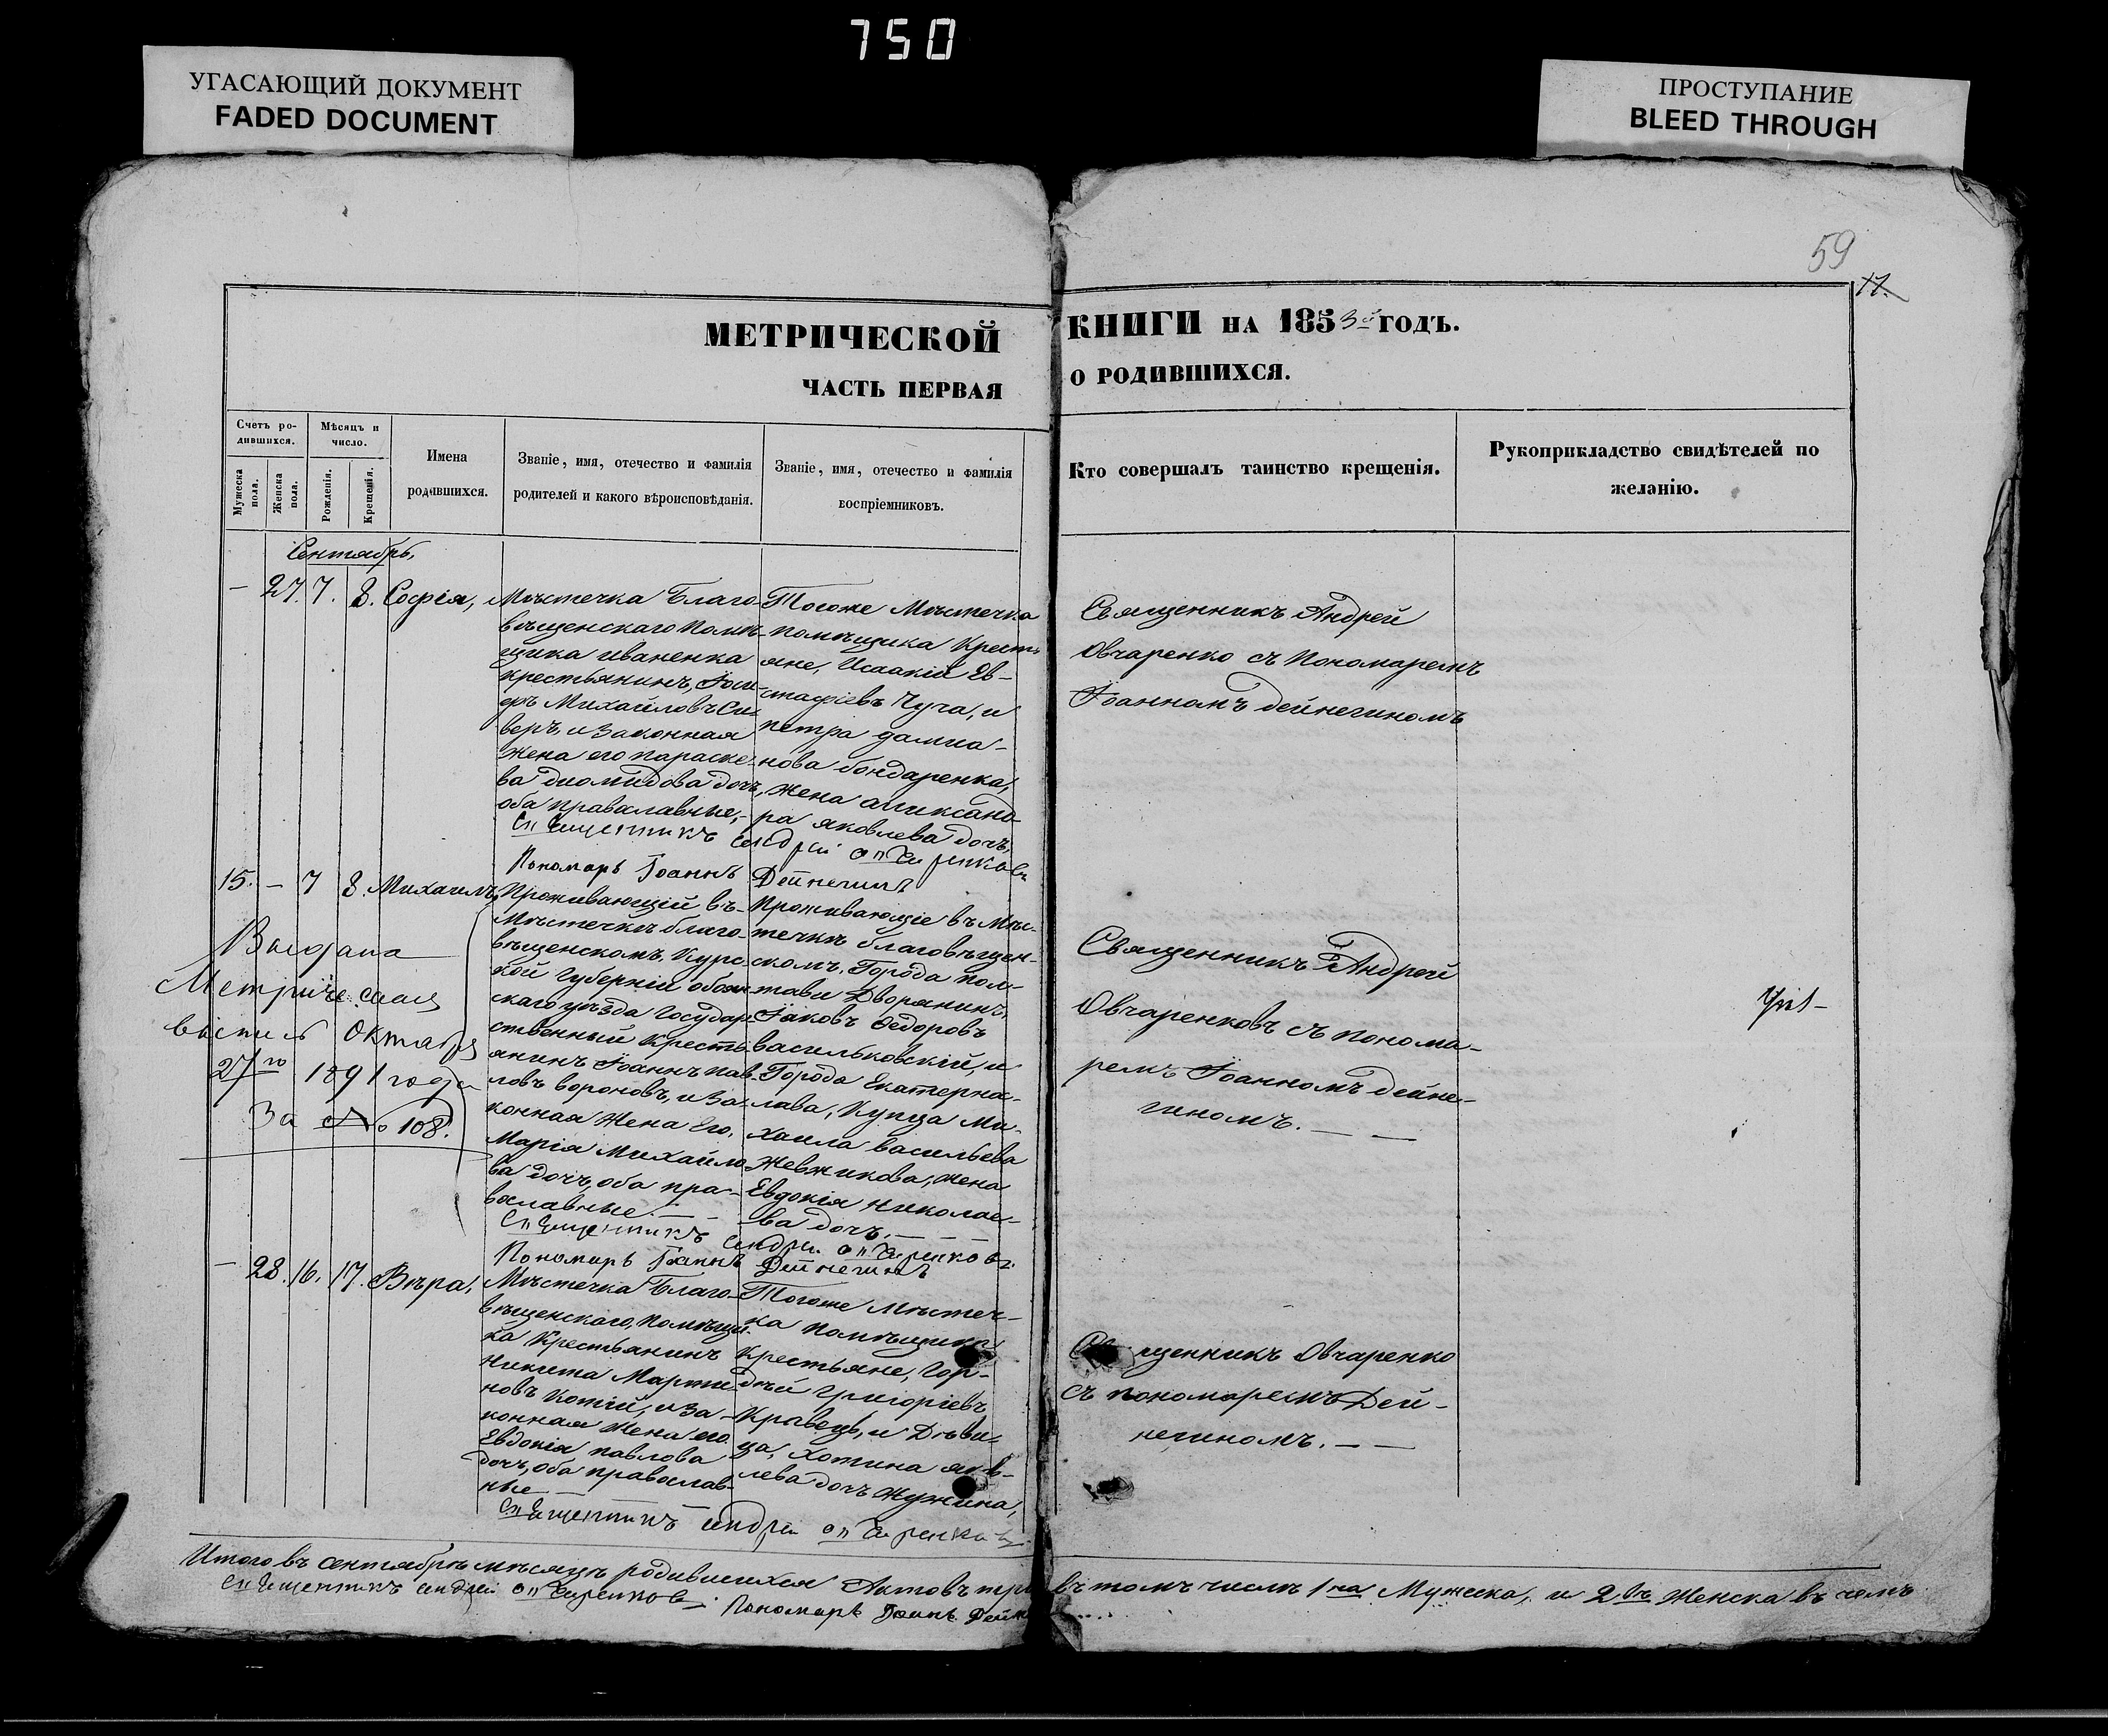 750
УГАСАЮЩИЙ ДОКУМЕНТ
FADED DOCUMENT
ПРОСТУПАНИЕ
BLEED THROUGH
59
17.
МЕТРИЧЕСКОЙ КНИГИ НА 1853й ГОДЪ.
ЧАСТЬ ПЕРВАЯ О РОДИВШИХСЯ.
Счетъ ро-
дившихся.
Мужеска пола.
Женска пола.
Мѣсяцъ и
число.
Рожденія.
Крещенія.
Имена
родившихся.
Званіе, имя, отечество и фамилія
родителей и какого вѣроисповѣданія.
Званіе, имя, отечество и фамилія
воспріемниковъ.
Кто совершалъ таинство крещенія.
Рукоприкладство свидѣтелей по
желанію.
Сентябрь,
— 27. 7. 8. Софія,
Мѣстечка Благо-
вѣщенскаго Помѣ-
щика иваненка
крестьянинъ, Іоси-
фъ Михайловъ Си-
веръ, и Законная
жена его параске-
ва диомидова дочь,
оба православные,
Тогоже Мѣстечка
помѣщика Кресть
яне, Исаакій Ев-
стафіевъ Чуча, и
петра дамиа-
нова бондаренка,
жена аликсанд-
ра яковлева дочь,
Священникъ Андрей Овчаренковъ
Пономарь Іоаннъ Дейнегинъ
Священникъ Андрей
Овчаренко съ Пономаремъ
Іоанномъ дейнегиномъ
15. — 7 8. Михаилъ,
Проживающій въ
Мѣстечкѣ благо-
вѣщенскомъ, Курс-
кой Губерніи, обоян-
скаго уѣзда Государ-
ственный Кресть-
янинъ Іоаннъ пав-
ловъ вороновъ, и За-
конная Жена Его,
Марія Михайло-
ва дочь, оба пра-
вославные. —
Проживающіе въ Мѣс-
течкѣ благовѣщен-
скомъ, Города пол-
тавы Дворянинъ,
Іаковъ Федоровъ
васильковскій, и
Города Екатерино-
лава, Купца Ми-
хаила васильева
Жевжикова, жена
Евдокія Николае-
ва дочь. —
Выдана
Метрическая
выпись Октября
27го 1891 года
За № 108.
Священникъ Андрей Овчаренковъ.
Пономарь Іоаннъ Дейнегинъ
Священникъ Андрей
Овчаренковъ съ понома-
ремъ Іоанномъ дейне-
гиномъ. — —
— 28. 16. 17. Вѣра,
Мѣстечка Благо-
вѣщенскаго, Помѣщи-
ка Крестьянинъ
Никита Марти-
новъ Копій, и За-
конная Жена его
Евдокія павлова
дочь, оба православ-
ные —
Тогоже Мѣстеч-
ка помѣщика
Крестьяне, Гор-
дѣй Григоріевъ
Кравецъ, и Дѣви-
ца, Хотина яков-
лева дочь Жужина,
Священникъ Андрей Овчаренковъ
щенникъ Овчаренко
съ пономаремъ Дей-
негиномъ. — —
Итого въ сентябрѣ мѣсяцѣ родившихся Актовъ три въ томъ числѣ 1на Мужеска, и 2вѣ Женска въ чемъ
Священникъ Андрей Овчаренковъ. Пономарь Іоаннъ Дейне